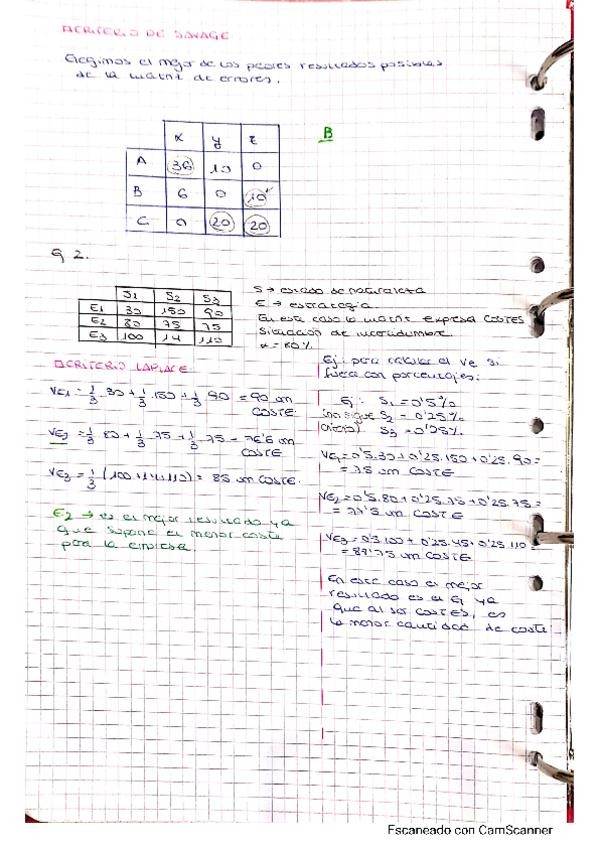 CRITERIO DE SAVAGE
Elegimos el mejor de los peores resultados posibles
de la matriz de errores.
x y z
A 36 10 0
B 6 0 10
C 0 20 20
B
Ej 2.
S1 S2 S3
E1 30 150 90
E2 80 75 75
E3 100 14 110
S → estado de naturaleza
E → estrategia
En este caso la matriz expresa COSTES
Situación de incertidumbre.
α = 80%
CRITERIO LAPLACE
VE1 = 1/3 · 30 + 1/3 · 150 + 1/3 · 90 = 90 um
COSTE.
VE2 = 1/3 · 80 + 1/3 · 75 + 1/3 · 75 = 76'6 um
COSTE
VE3 = 1/3 (100+14+110) = 85 um COSTE.
E2 → es el mejor resultado ya
que supone el menor coste
para la empresa.
Ej: para calcular el VE si
fuera con porcentajes:
Ej: S1 = 0'5%
S2 = 0'25%
S3 = 0'25%
VE1 = 0'5·30 + 0'25·150 + 0'25·90 =
= 75 um COSTE
VE2 = 0'5·80 + 0'25·75 + 0'25·75 =
= 77'5 um COSTE
VE3 = 0'5·100 + 0'25·45 + 0'25·110 =
= 88'75 um COSTE
En este caso el mejor
resultado es el E1 ya
que al ser costes, es
la menor cantidad de coste
Escaneado con CamScanner